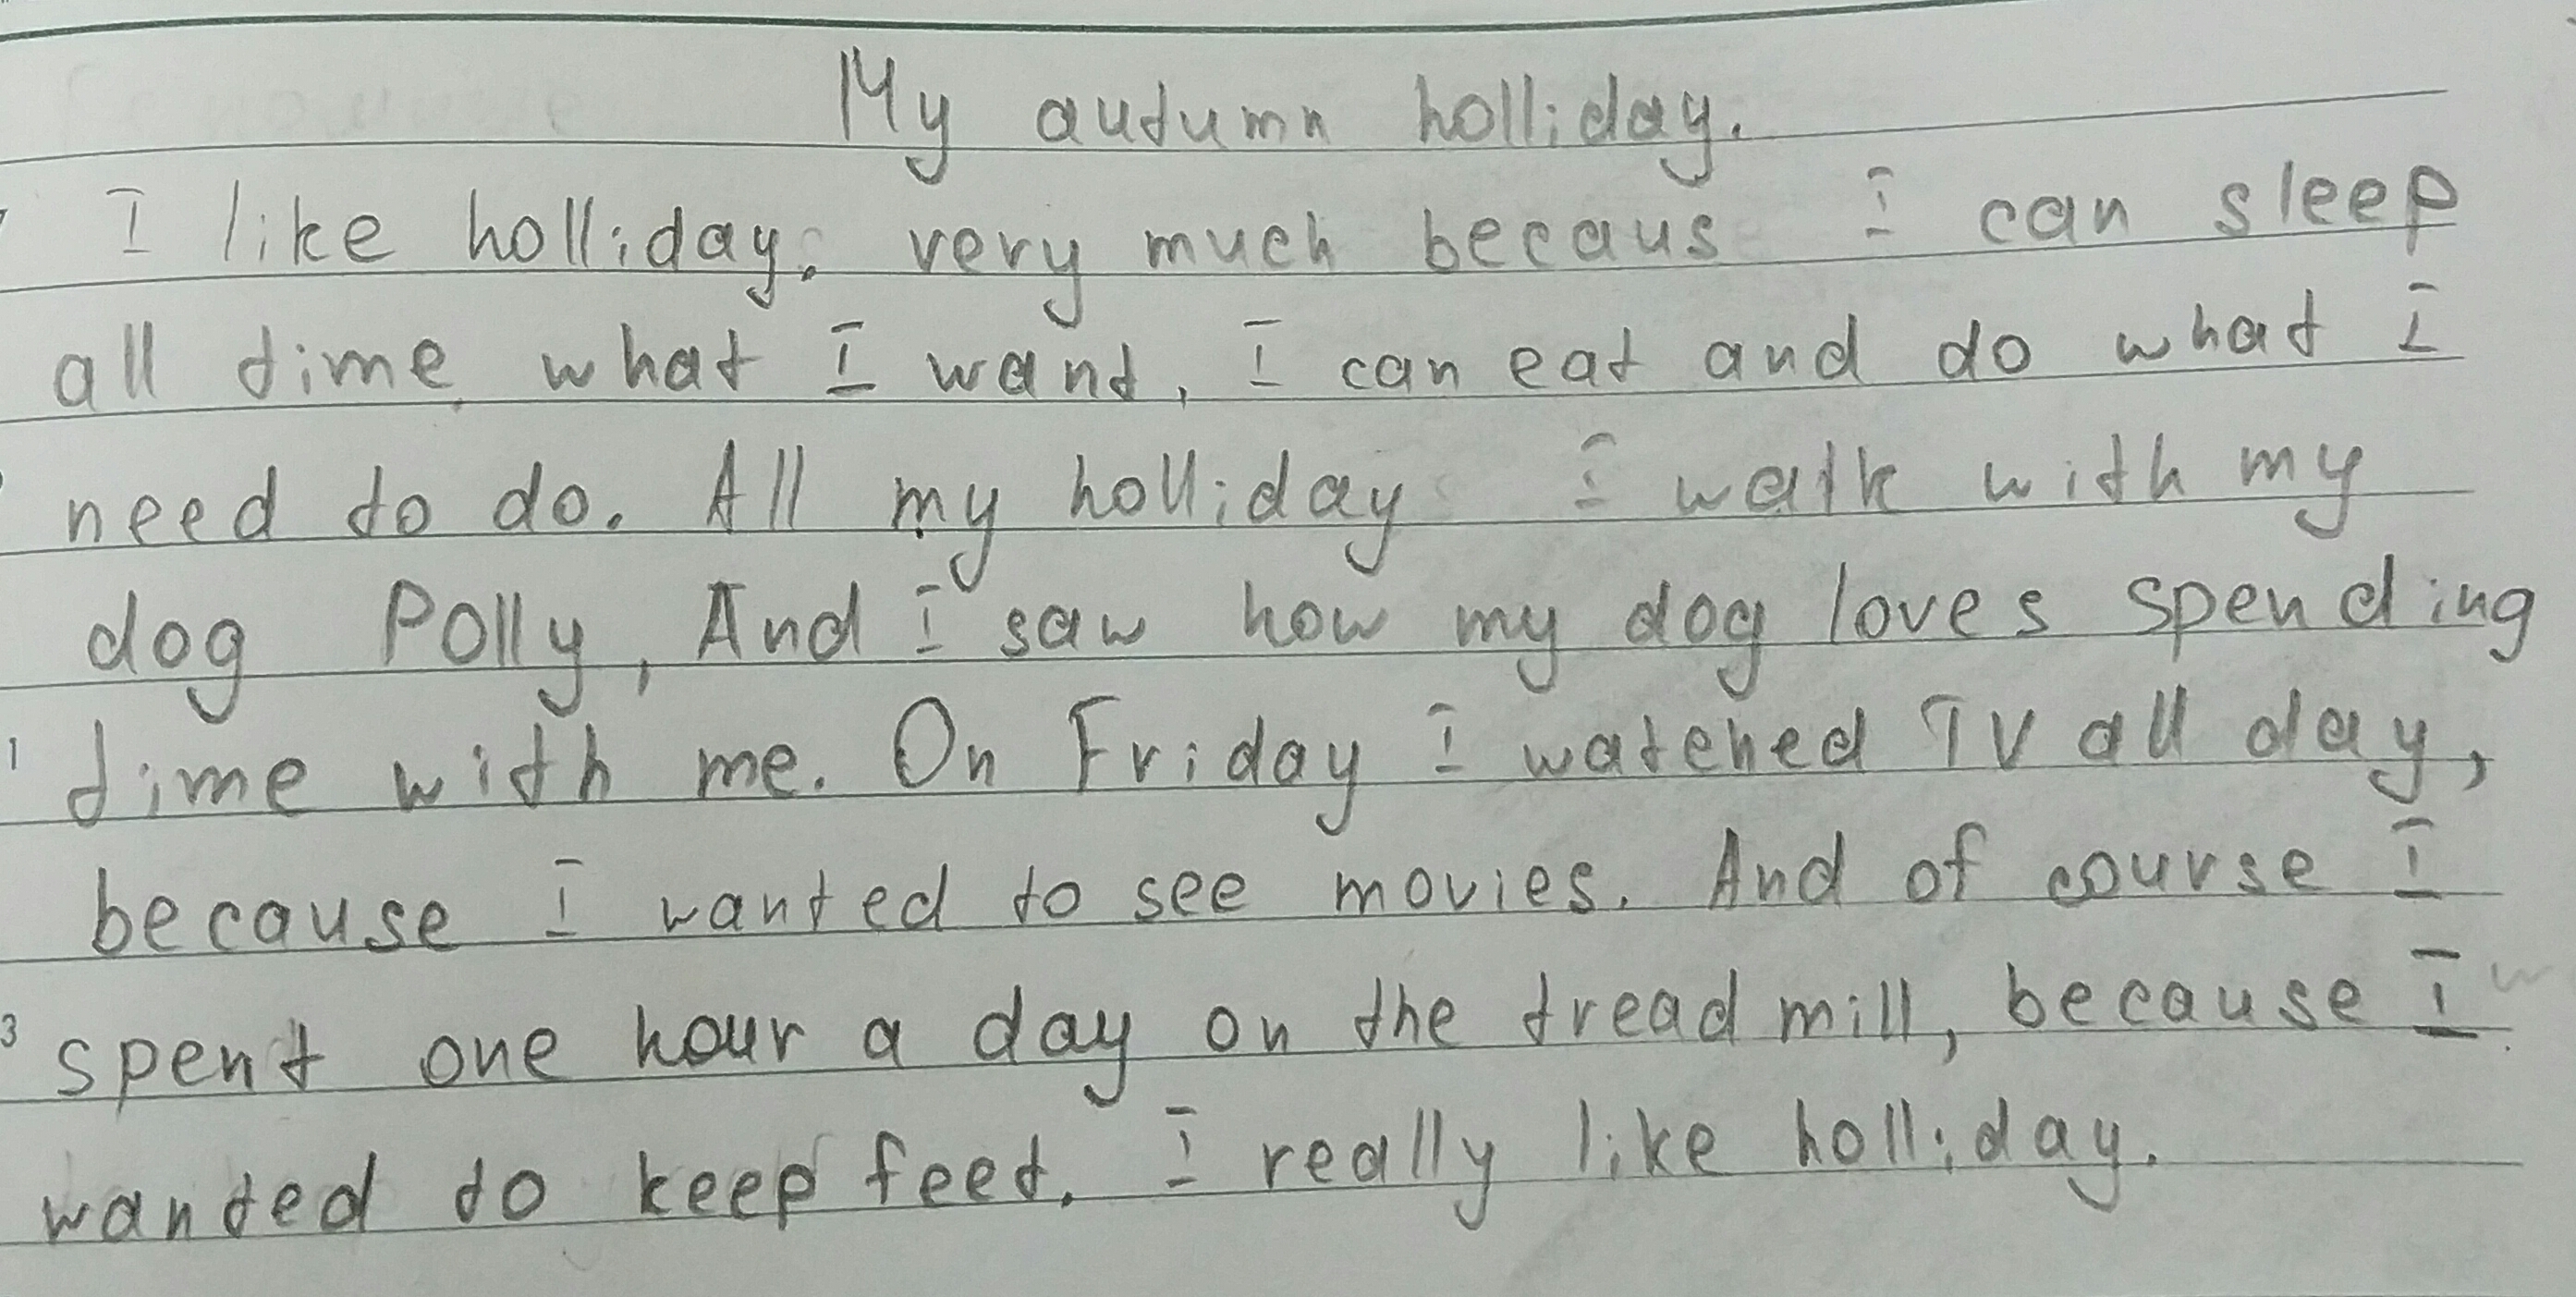 My autumn holliday.
I like holliday. very much becaus I can sleep
all time what I want, I can eat and do what I
need to do. All my holliday I walk with my
dog Polly, And I saw how my dog loves spending
time with me. On Friday I watched TV all day,
because I wanted to see movies. And of course I
spent one hour a day on the treadmill, because I
wanted to keep feet. I really like holliday.